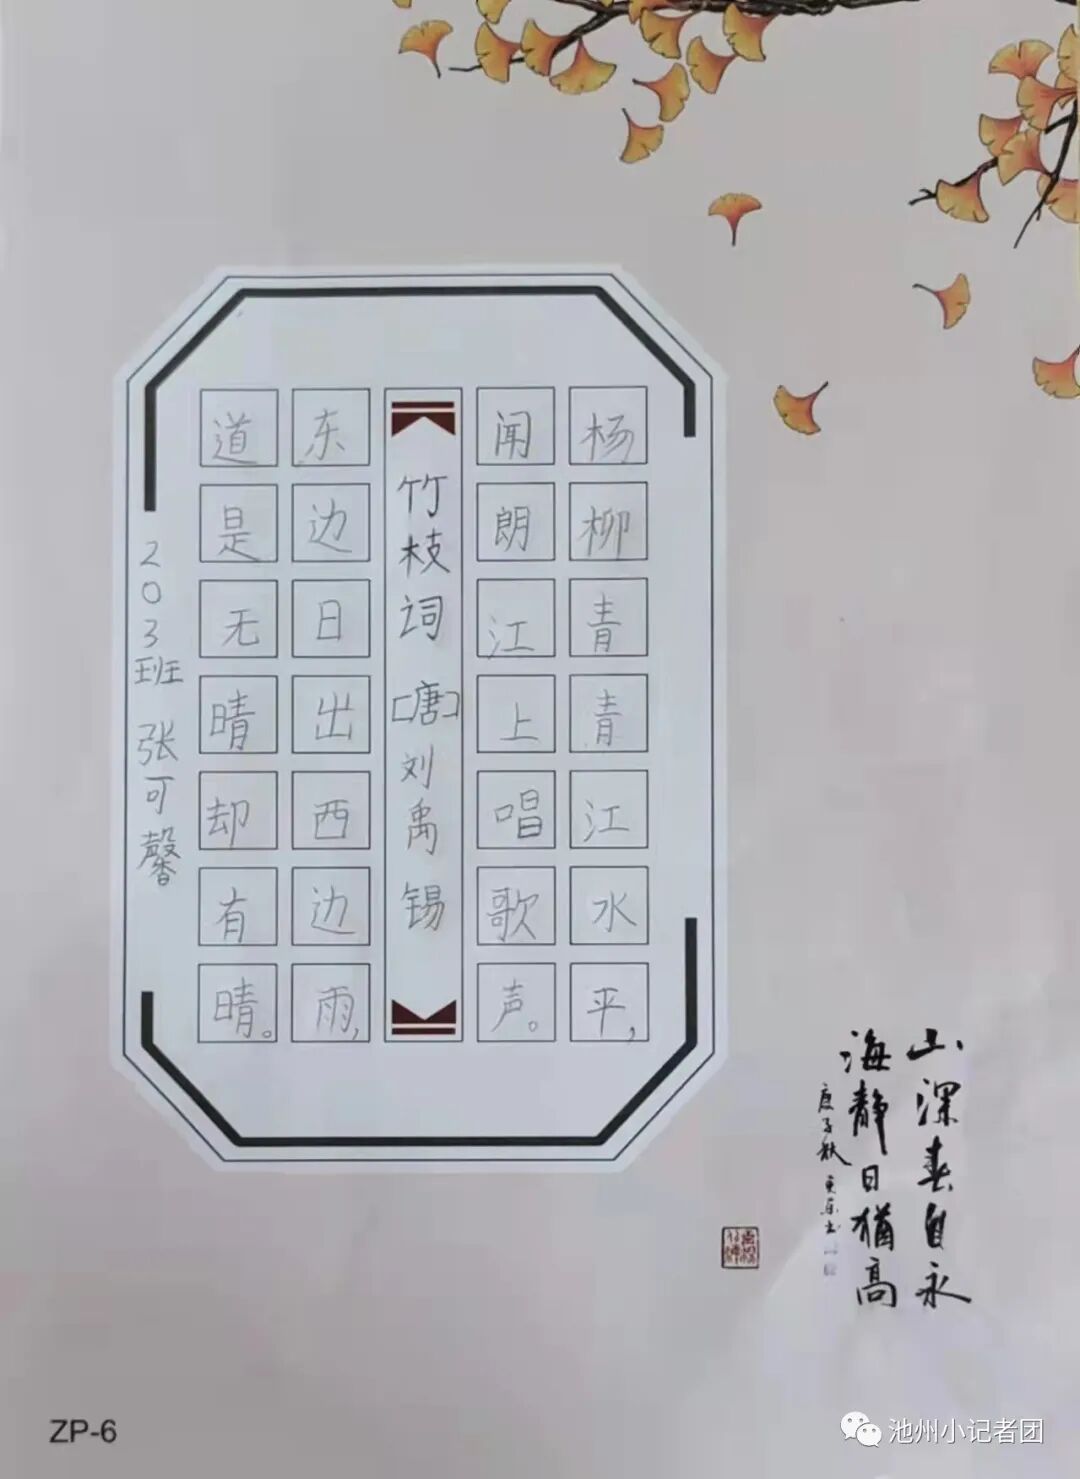 杨柳青青江水平,
闻朗江上唱歌声。
竹枝词 [唐]刘禹锡
东边日出西边雨,
道是无晴却有晴。
203班 张可馨
山深春自永
海静日犹高
庚子秋
ZP-6
池州小记者团